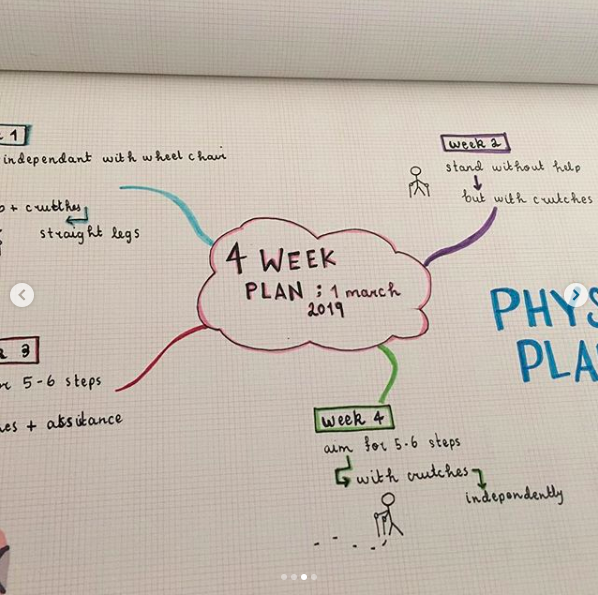 1
independant with wheel chair
+ crutches
straight legs
week 2
stand without help
but with crutches
4 WEEK
PLAN : 1 march
2019
PHYS
PLA
3
5-6 steps
+ assitance
week 4
aim for 5-6 steps
with crutches
independently